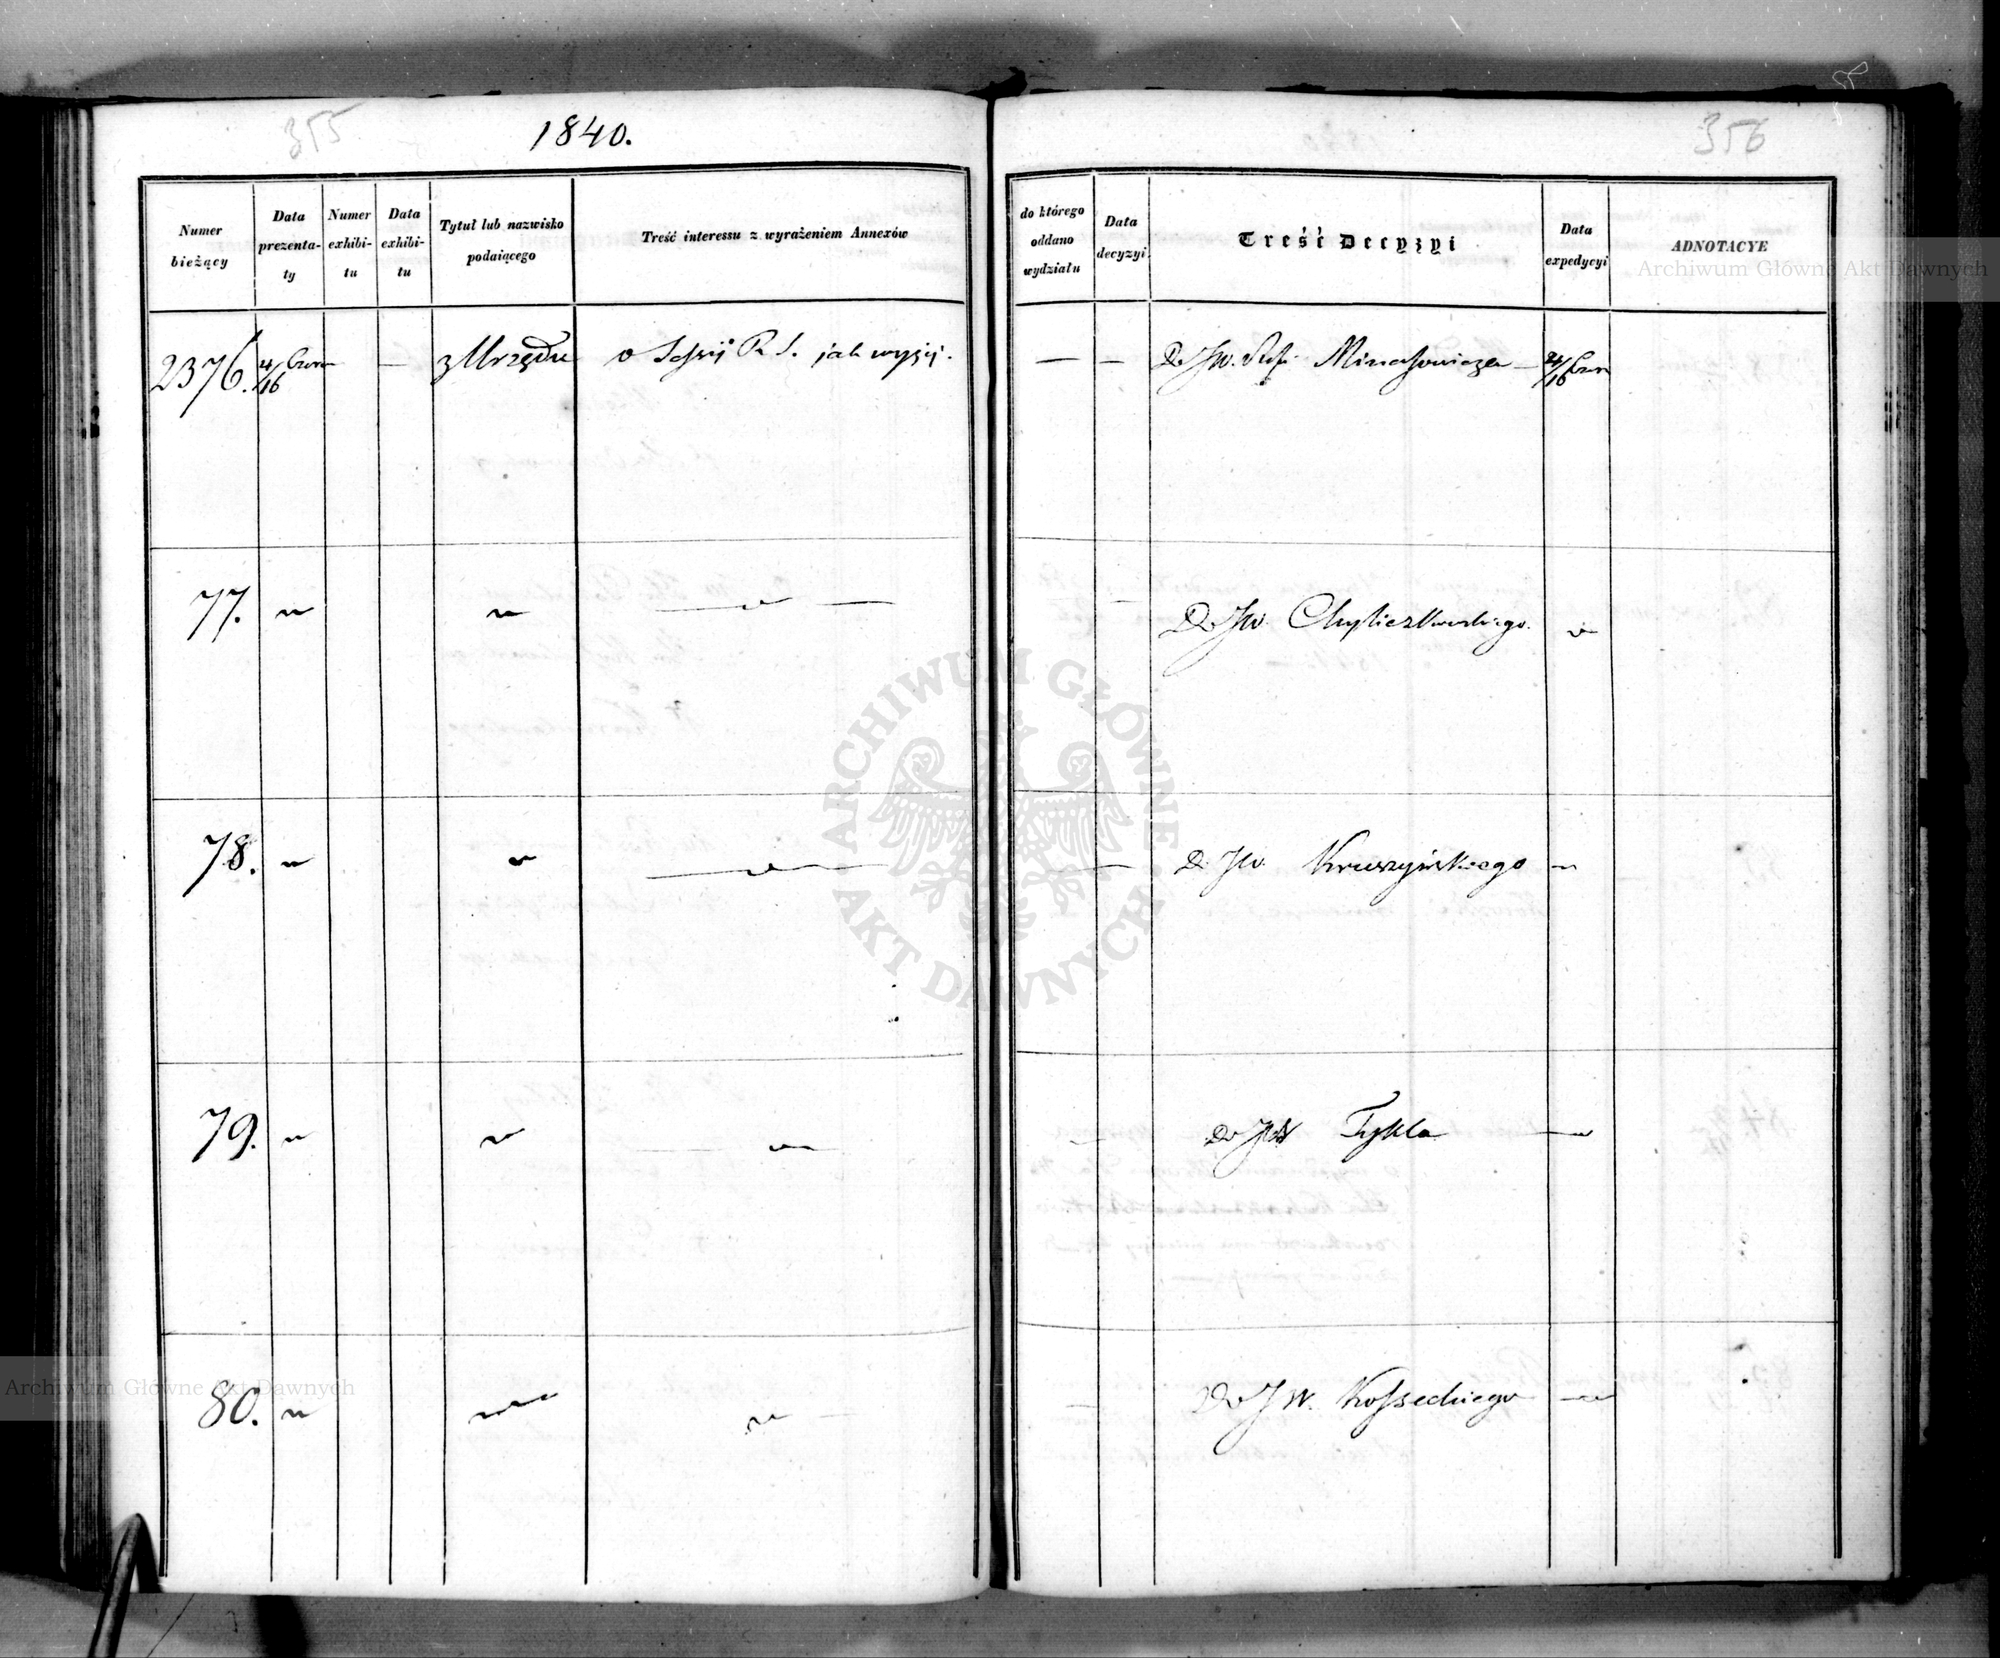 355
1840.
356
Numer bieżący
Data prezenta-ty
Numer exhibi-tu
Data exhibi-tu
Tytuł lub nazwisko podaiącego
Treść interessu z wyrażeniem Annexów
do którego oddano wydziału
Data decyzyi
Treść Decyzyi
Data expedycyi
ADNOTACYE
2376. 4/16 Czerw — z Urzędu o Sessyi R. S. jak wyżej. — — Do JW. Minasowicza — 4/16 Czerw
77. " " — " — — Do JW. Chyliczkowskiego. "
78. " " — " — — Do JW. Kruszyńskiego "
79. " " — " — — Do JW Tykla — "
80. " " " — — Do JW. Kosseckiego — "
ARCHIWUM GŁÓWNE AKT DAWNYCH
Archiwum Główne Akt Dawnych
Archiwum Główne Akt Dawnych